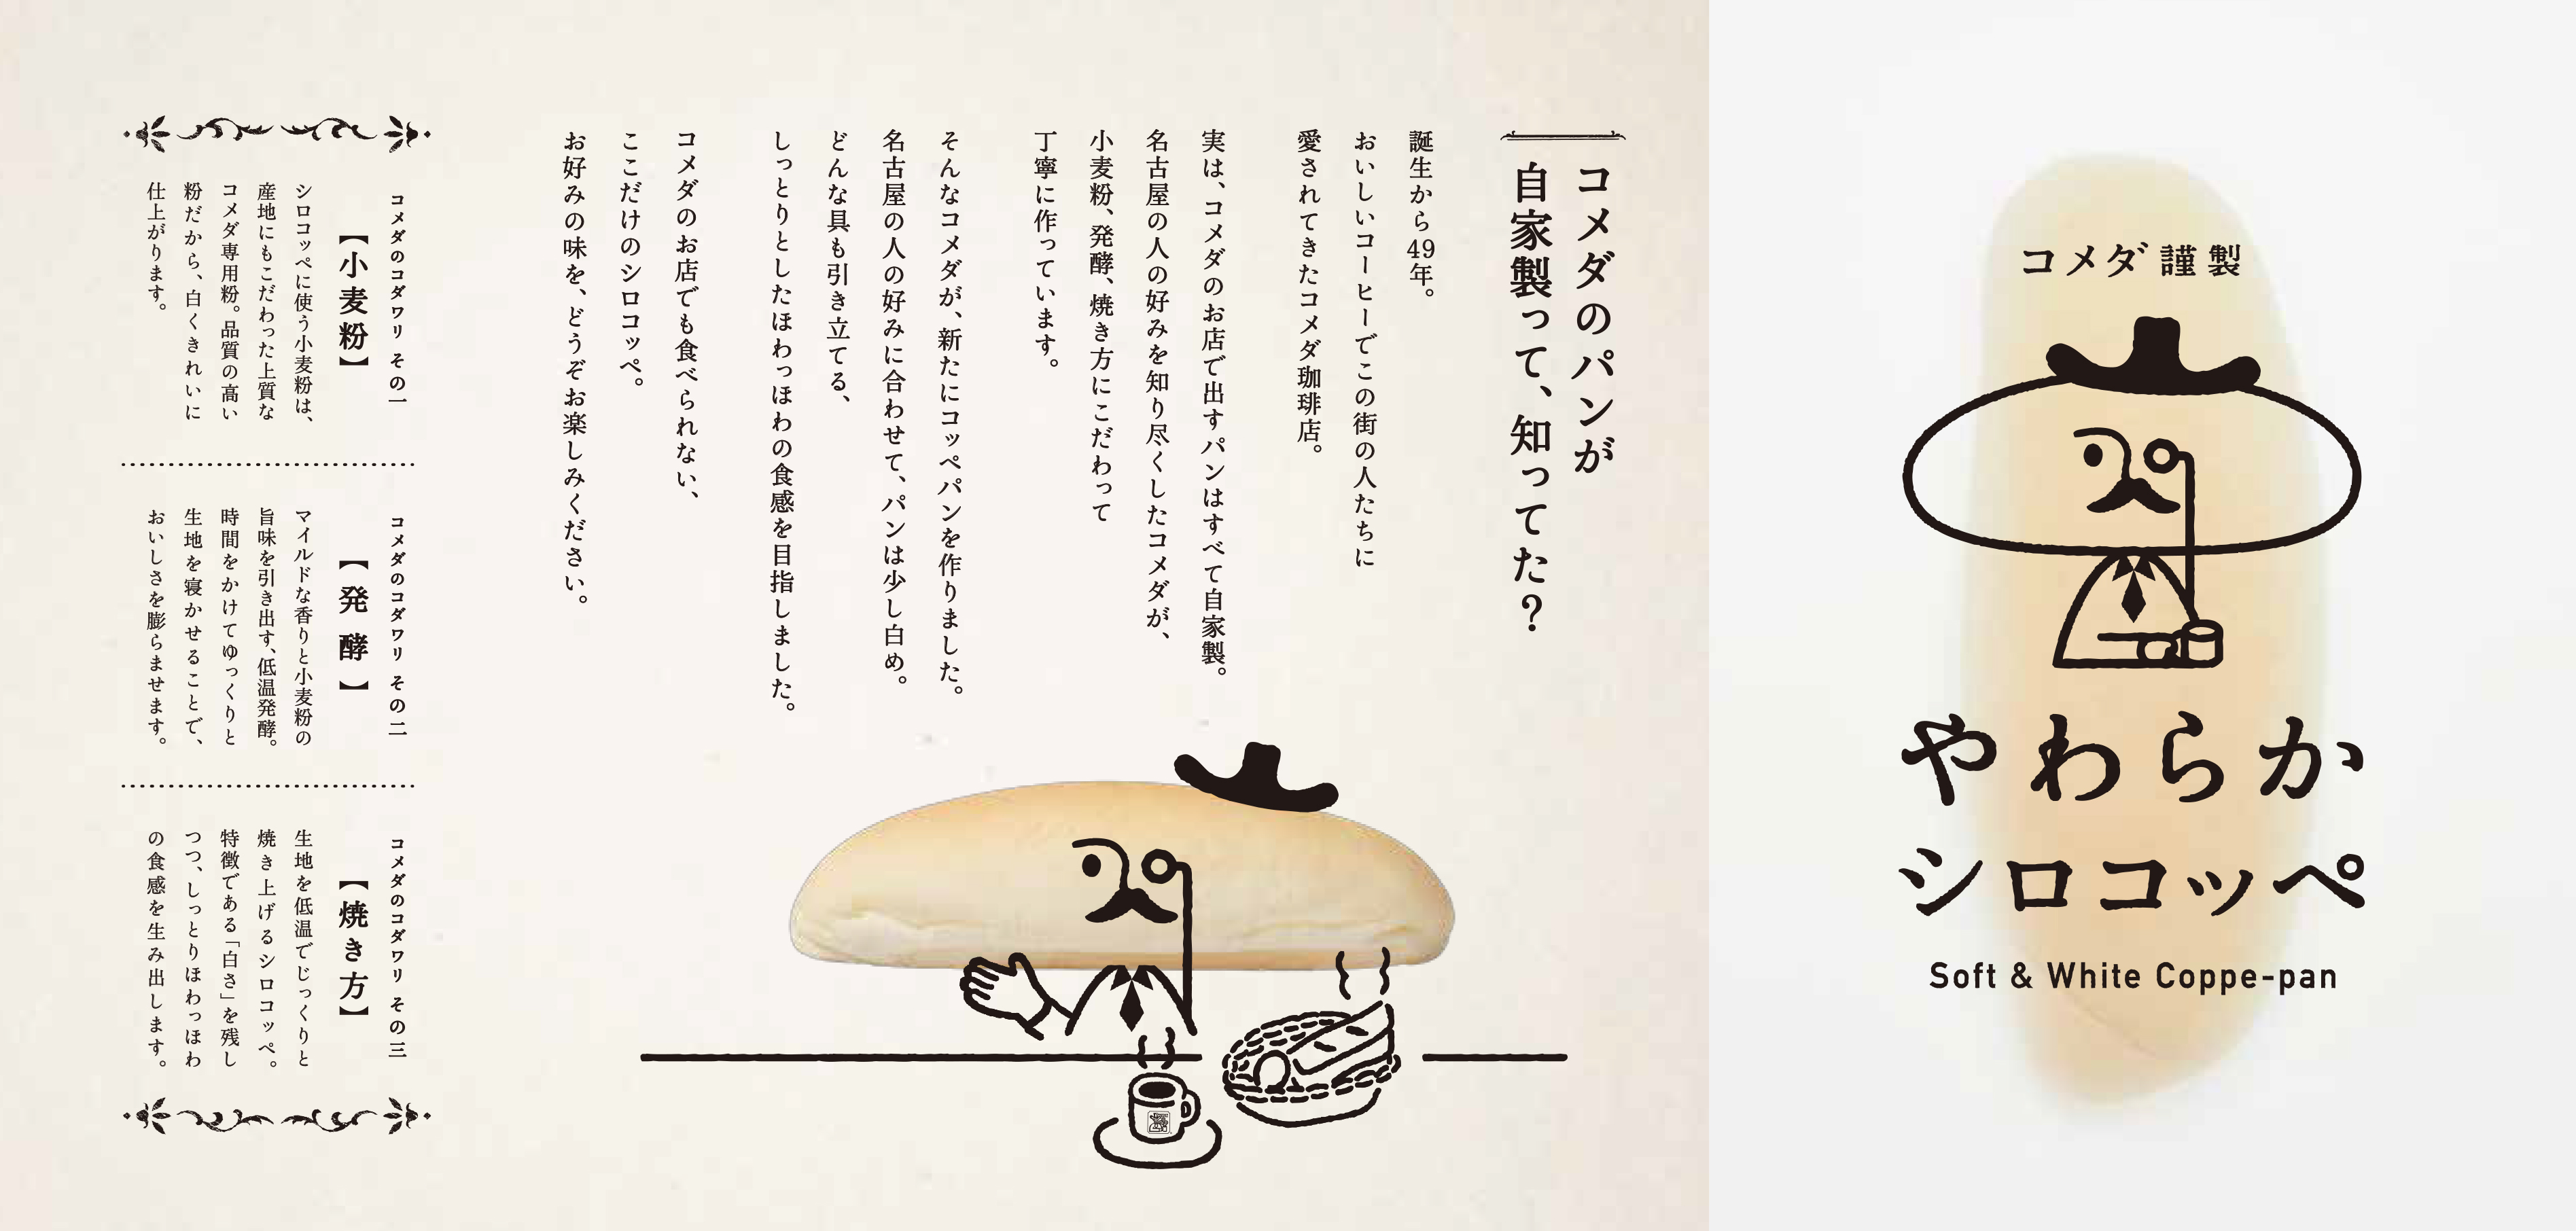 コメダ謹製
やわらか
シロコッペ
Soft & White Coppe-pan
コメダのパンが
自家製って、知ってた?
誕生から49年。
おいしいコーヒーでこの街の人たちに
愛されてきたコメダ珈琲店。
実は、コメダのお店で出すパンはすべて自家製。
名古屋の人の好みを知り尽くしたコメダが、
小麦粉、発酵、焼き方にこだわって
丁寧に作っています。
そんなコメダが、新たにコッペパンを作りました。
名古屋の人の好みに合わせて、パンは少し白め。
どんな具も引き立てる、
しっとりとしたほわっほわの食感を目指しました。
コメダのお店でも食べられない、
ここだけのシロコッペ。
お好みの味を、どうぞお楽しみください。
コメダのコダワリ その一
【小麦粉】
シロコッペに使う小麦粉は、
産地にもこだわった上質な
コメダ専用粉。品質の高い
粉だから、白くきれいに
仕上がります。
コメダのコダワリ その二
【発酵】
マイルドな香りと小麦粉の
旨味を引き出す、低温発酵。
時間をかけてゆっくりと
生地を寝かせることで、
おいしさを膨らませます。
コメダのコダワリ その三
【焼き方】
生地を低温でじっくりと
焼き上げるシロコッペ。
特徴である「白さ」を残し
つつ、しっとりほわっほわ
の食感を生み出します。